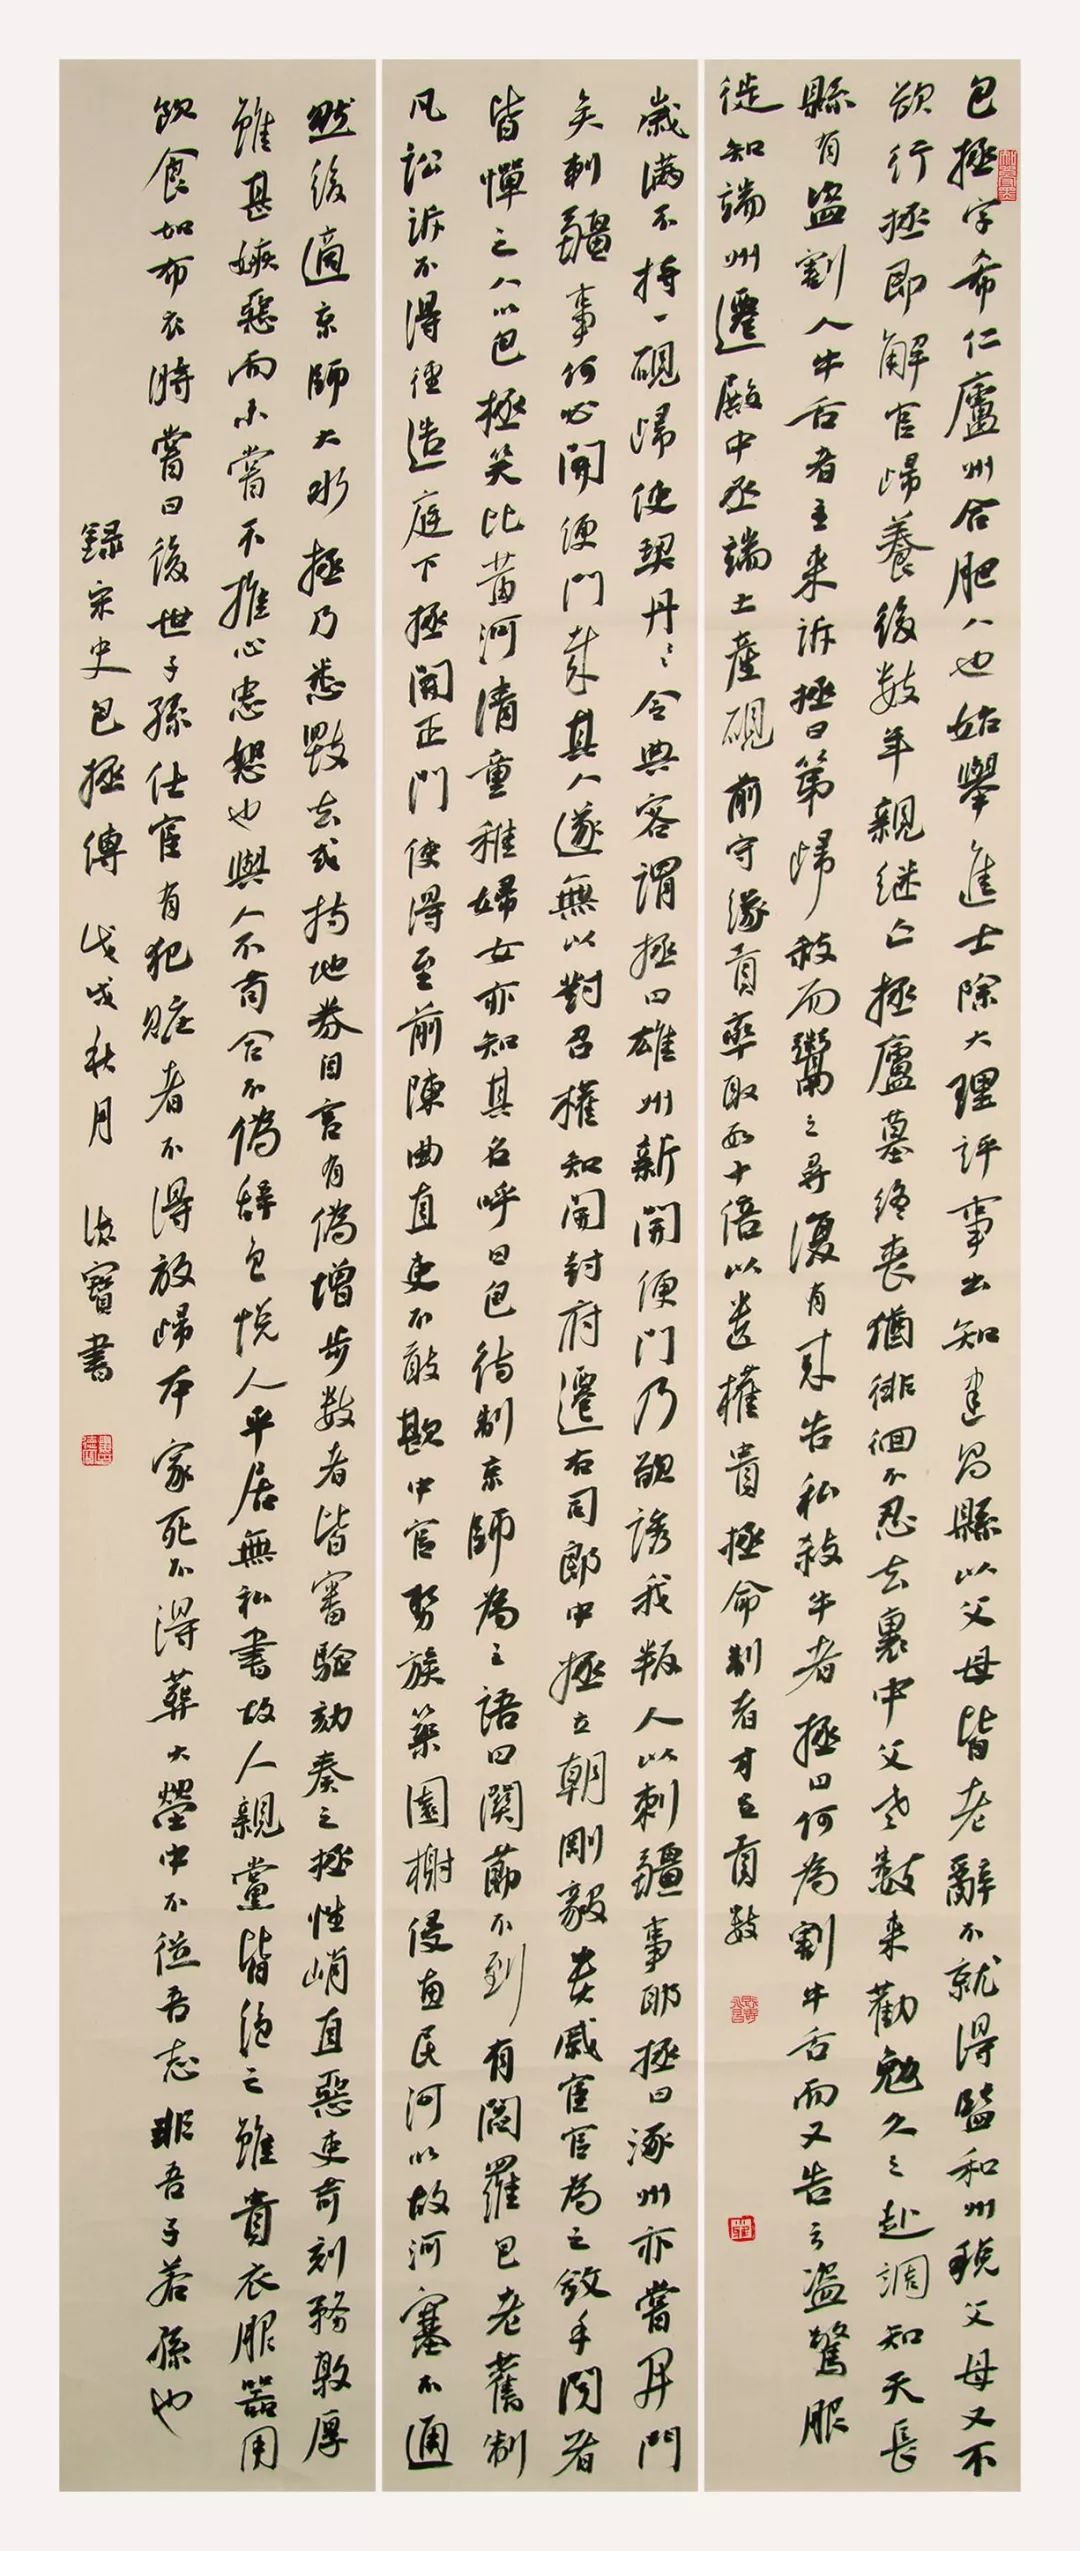 包拯字希仁廬州合肥人也始舉進士除大理評事出知建昌縣以父母皆老辭不就得監和州稅父母又不
欲行拯即解官歸養後數年親繼亡拯廬墓終喪猶徘徊不忍去裏中父老數來勸勉久之赴調知天長
縣有盜割人牛舌者主來訴拯曰第歸殺而鬻之尋復有來告私殺牛者拯曰何為割牛舌而又告之盜驚服
徙知端州遷殿中丞端土產硯前守緣貢率取數十倍以遺權貴拯命制者才足貢數
歲滿不持一硯歸使契丹々令典客謂拯曰雄州新開便門乃欲誘我叛人以刺疆事耶拯曰涿州亦嘗開門
矣刺疆事何必開便門哉其人遂無以對召權知開封府遷右司郎中拯立朝剛毅貴戚宦官為之斂手聞者
皆憚之人以包拯笑比黃河清童稚婦女亦知其名呼曰包待制京師為之語曰關節不到有閻羅包老舊制
凡訟訴不得徑造庭下拯開正門使得至前陳曲直吏不敢欺中官勢族築園榭侵惠民河以故河塞不通
然後適京師大水拯乃悉毀去或持地券自言有偽增步數者皆審驗劾奏之拯性峭直惡吏苛刻務敦厚
雖甚嫉惡而未嘗不推心忠恕也與人不苟合不偽辭色悅人平居無私書故人親黨皆絕之雖貴衣服器用
飲食如布衣時嘗曰後世子孫仕宦有犯贓者不得放歸本家死不得葬大塋中不從吾志非吾子若孫也
錄宋史包拯傳 戊戌秋月 德寶書